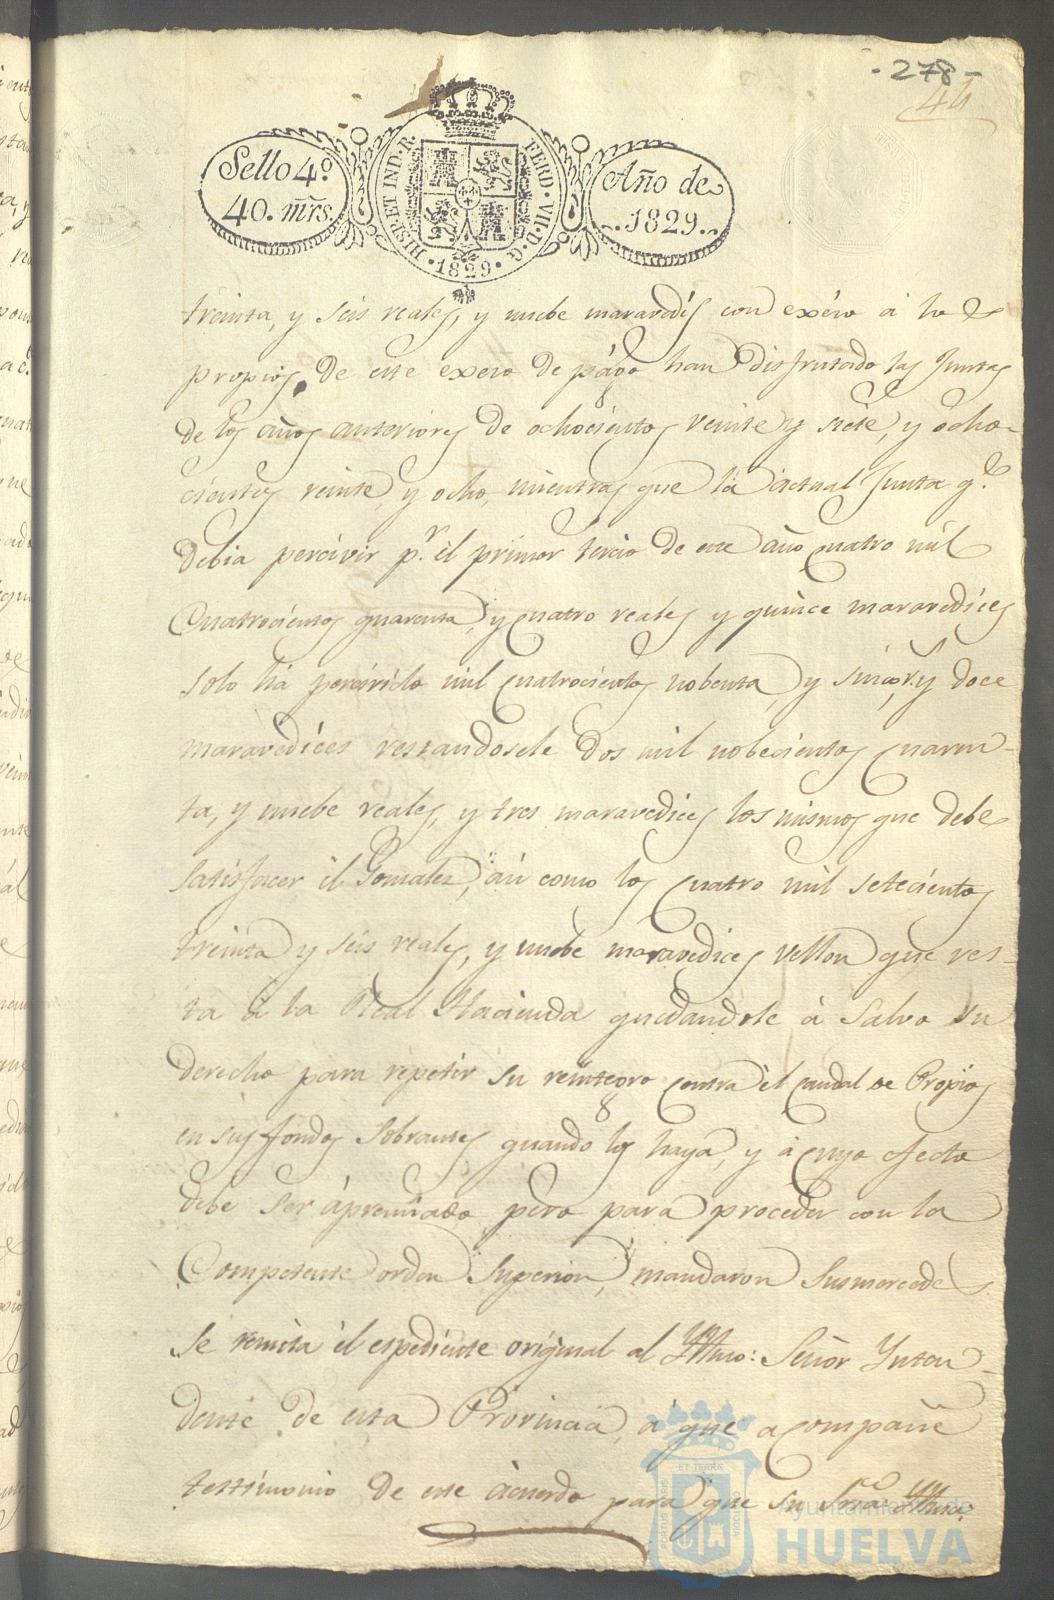 - 278 -
44
Sello 4º.
40. mrs.
HISP. ET IND. R. FERD. VII. D. G.
· 1829 ·
Año de
1829.
treinta, y seis reales, y nuebe maravedis con exéro á los
propios, de este exero de págo han disfrutado las Juntas
de los años anteriores de ochocientos veinte y siete, y ocho-
cientos veinte, y ocho, mientras que la actual Junta q.e
debia percivir p.r el primer tercio de este año quatro mil
Cuatrocientos quarenta, y quatro reales y quince maravedices
solo ha percivido mil quatrocientos nobenta, y sinco r.s y doce
maravedices restandosele dos mil nobecientos quaren-
ta, y nuebe reales, y tres maravedices los mismos que debe
satisfacer el Gonzalez, asi como los quatro mil setecientos
treinta y seis reales, y nuebe maravedices vellon que res-
ta á la Real Hacienda quedandole á salvo su
derecho para repetir su reintegro contra el caudal de Propios
en sus fondos sobrantes quando los haya, y á cuyo efecto
debe ser ápremiado, pero para proceder con la
Competente orden Superior, mandaron Susmercedes
se remita el espediente original al Yltmo: Señor Ynten-
dente de esta Provincia, á que acompañe
testimonio de este ácuerdo para que su Sria. Yltma.
ET TERRÆ
Ayuntamiento de
HUELVA